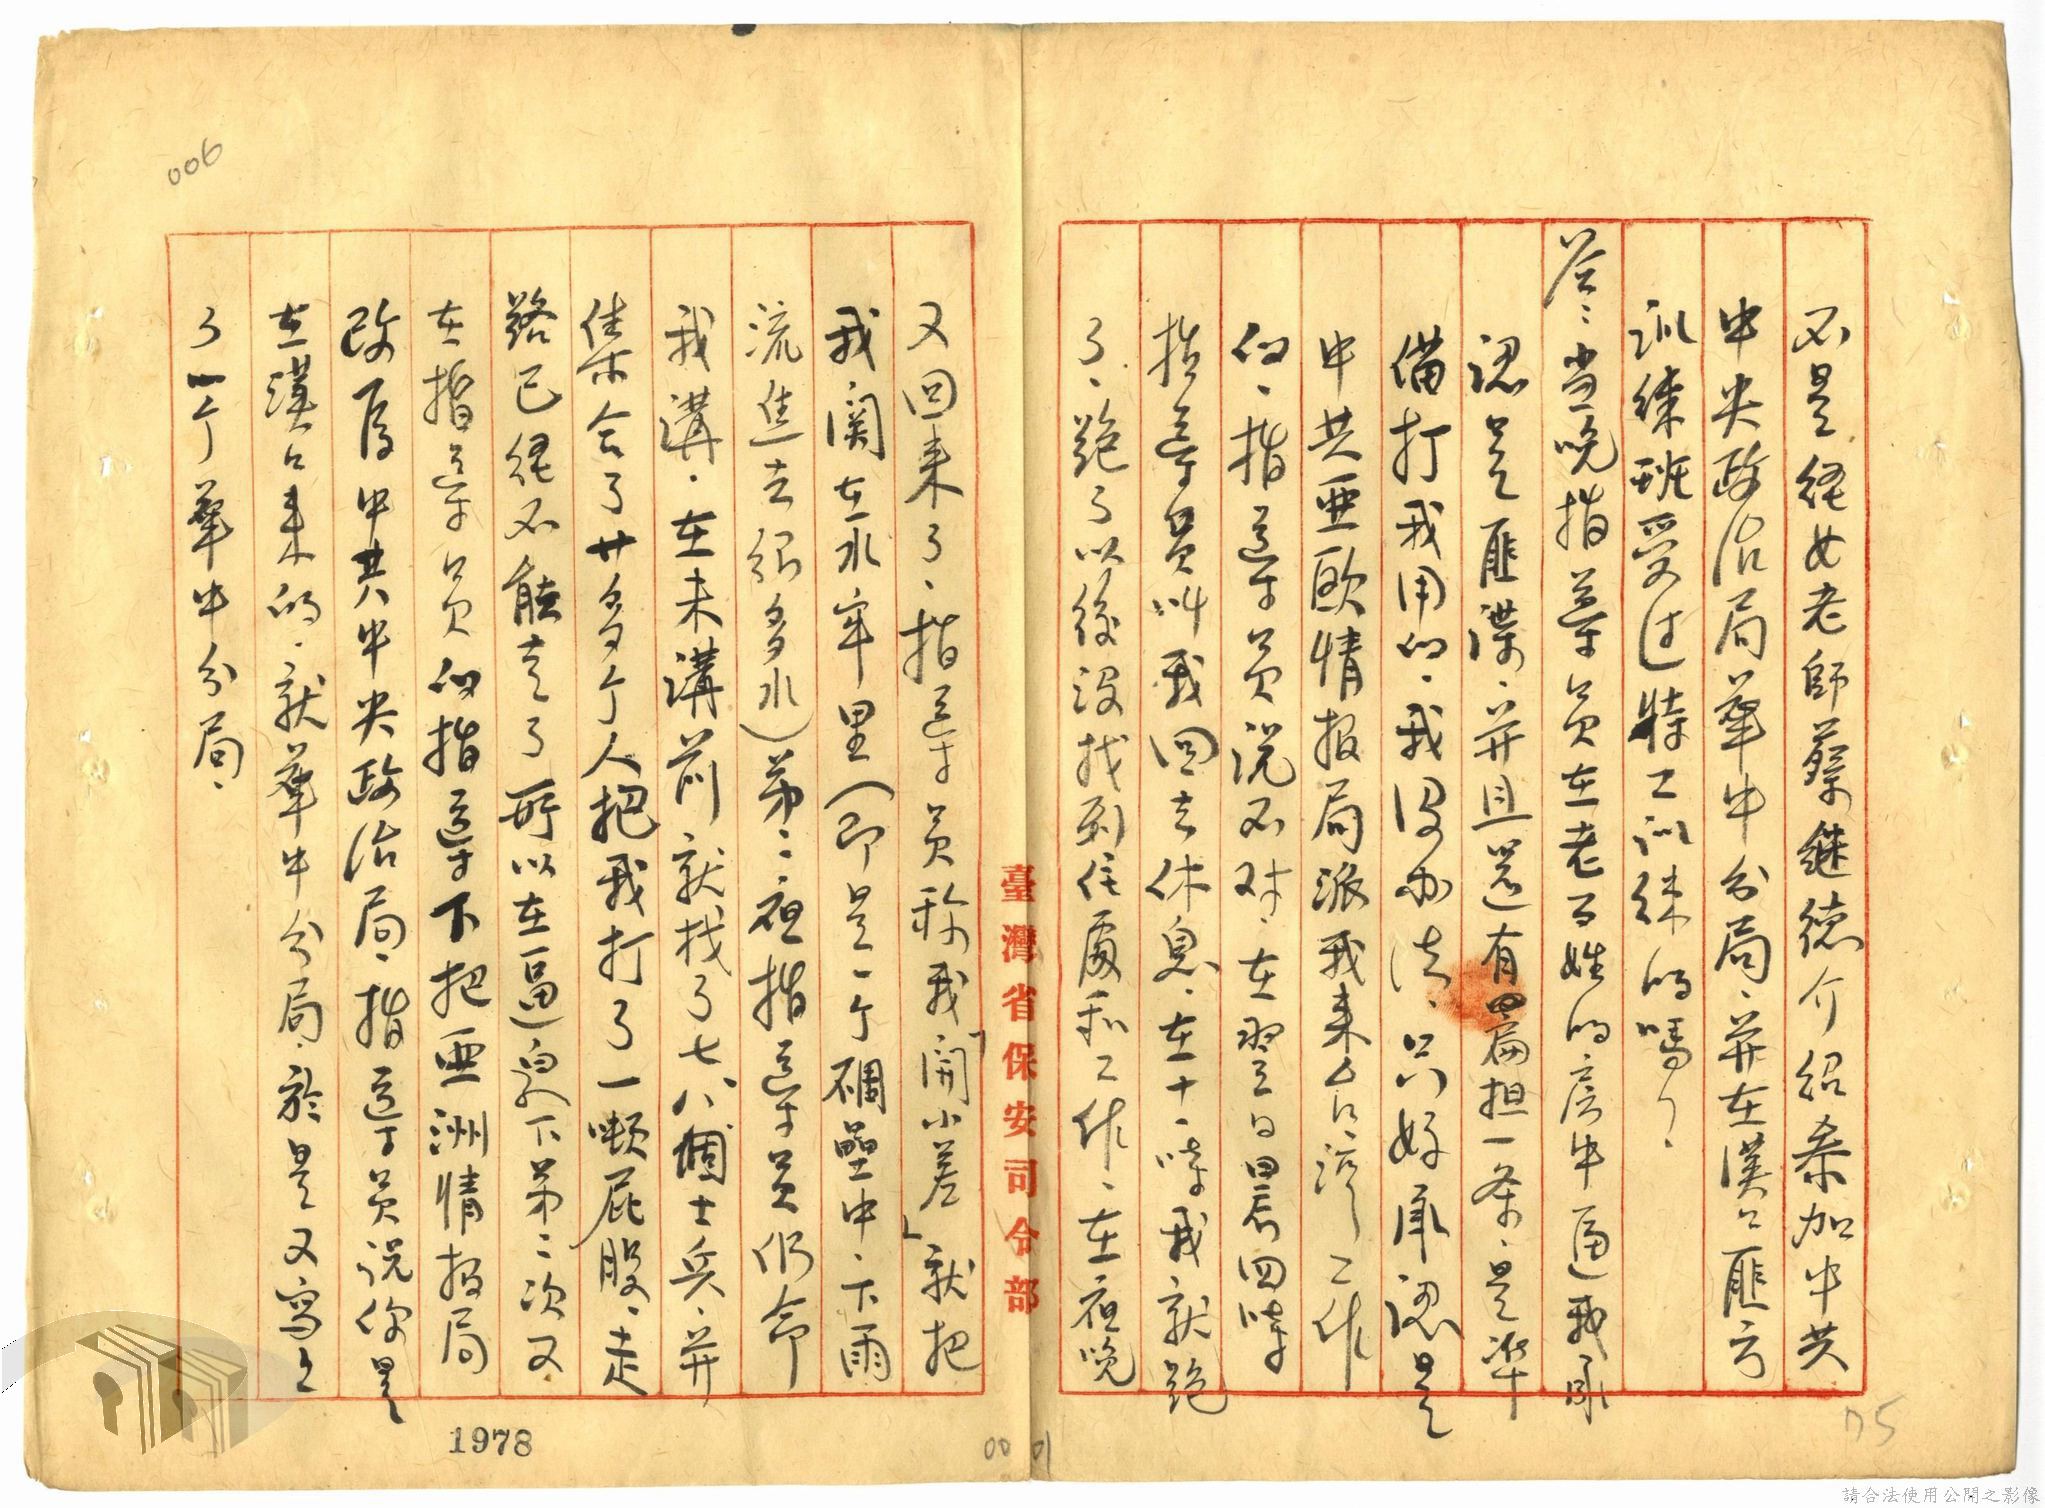 不是経女老師蔡継德介紹参加中共
中央政治局華中分局、並在漢口匪方
訓練班受过特工訓練的嗎？
答：当晚指導員在老百姓的房中逼我承
認是匪諜、并且还有四扁担一条、是準
備打我用的、我没办法、只好承認是
中共亜欧情报局派我来台湾工作
的、指導員説不对、在翌日晨四時
指導員叫我回去休息、在十一時我就跑
了、跑了以後没找到住處和工作、在夜晚
臺灣省保安司令部
又回来了、指導員称我「開小差」就把
我関在水牢里（即是一个碉壘中、下雨
流進去很多水）第二夜指導員仍命
我講、在未講前就找了七八個士兵、并
集合了廿多个人把我打了一顿屁股、走
路已経不能走了所以在逼迫下第二次又
在指導員的指導下把亜洲情报局
改为中共中央政治局、指導員説你是
在漢口来的、就華中分局、於是又寫上
了一个華中分局、
006
1978
00 01
75
請合法使用公開之影像